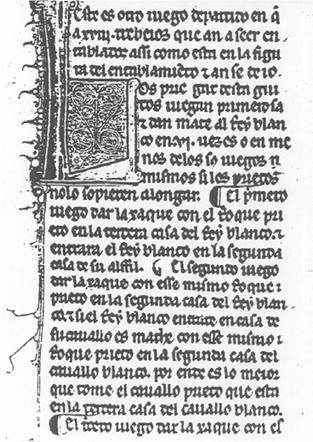 Este es otro iuego departido en q̃
a .xxiii. trebeios que an a seer en
tablados assi como esta en la figu
ra del entablamiento τ an se de io⸗
Los prie gar desta guisa
tos iuegan primero τ a
τ dan mate al Rey blan
co en .vi. uezes o en me
nos delos so iuegos
mismos si los prietos
nolo sopieren alongar. El p̃mero
iuego dar la xaque con el Roque pri
eto en la tercera casa del Rey blanco. τ
entrara el Rey blanco en la segunda
casa de su alffil. El segundo iuego
dar la xaque con esse mismo Roque
prieto en la segunda casa del Rey blan⸗
co. τ si el Rey blanco entrare en casa de
su cauallo es mathe con esse mismo
Roque prieto en la segunda casa del
cauallo blanco. por ente es lo meior
que tome el cauallo prieto que esta
en la tercera casa del cauallo blanco.
El t̃cero iuego dar la xaque con el